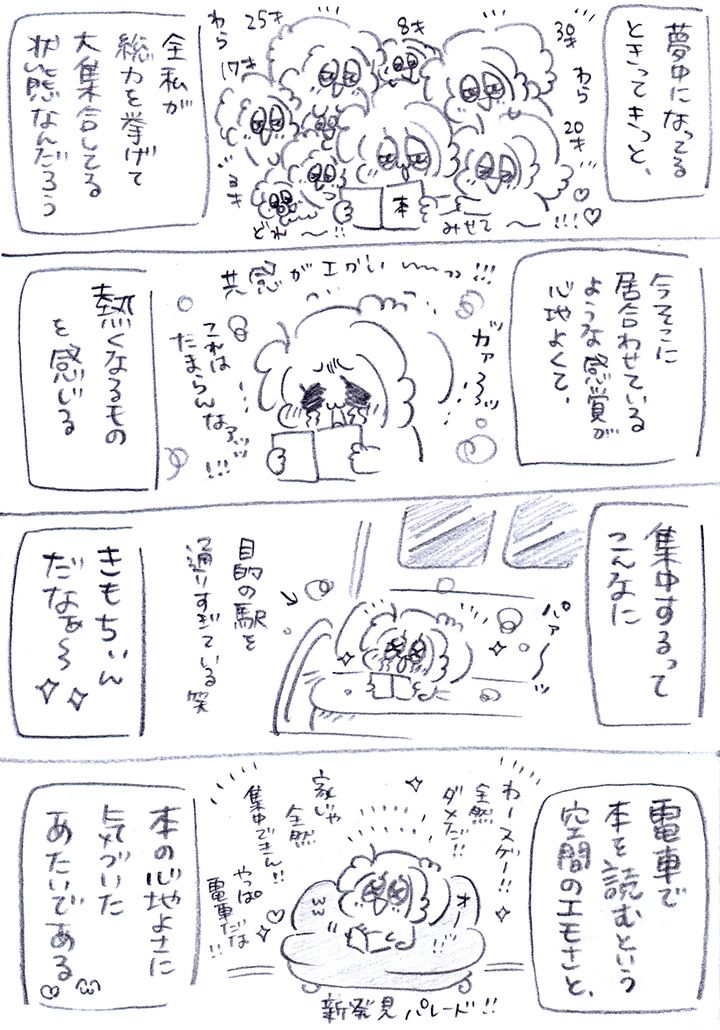 夢中になってる
ときってきっと、
30才
わら
20才
8才
25才
わら
17才
3才
どれ〜!!
本
みせて〜!!!
全私が
総力を挙げて
大集合してる
状態なんだろう
今そこに
居合わせている
ような感覚が
心地よくて、
共感がエグい〜〜っ!!!
ガァァァッ
これは
たまらんなアッッ
!!!
熱くなるもの
を感じる
集中するって
こんなに
パァ〜ッ
目的の駅を
通りすぎている笑
きもちぃん
だなぁ〜
電車で
本を読むという
空間のエモさと、
わースゲー!!
全然
ダメだ!!
家じゃ
全然
集中できん!!
やっぱ
電車だな
!!
オー
新発見パレード!!
本の心地よさに
気づいた
あたいである